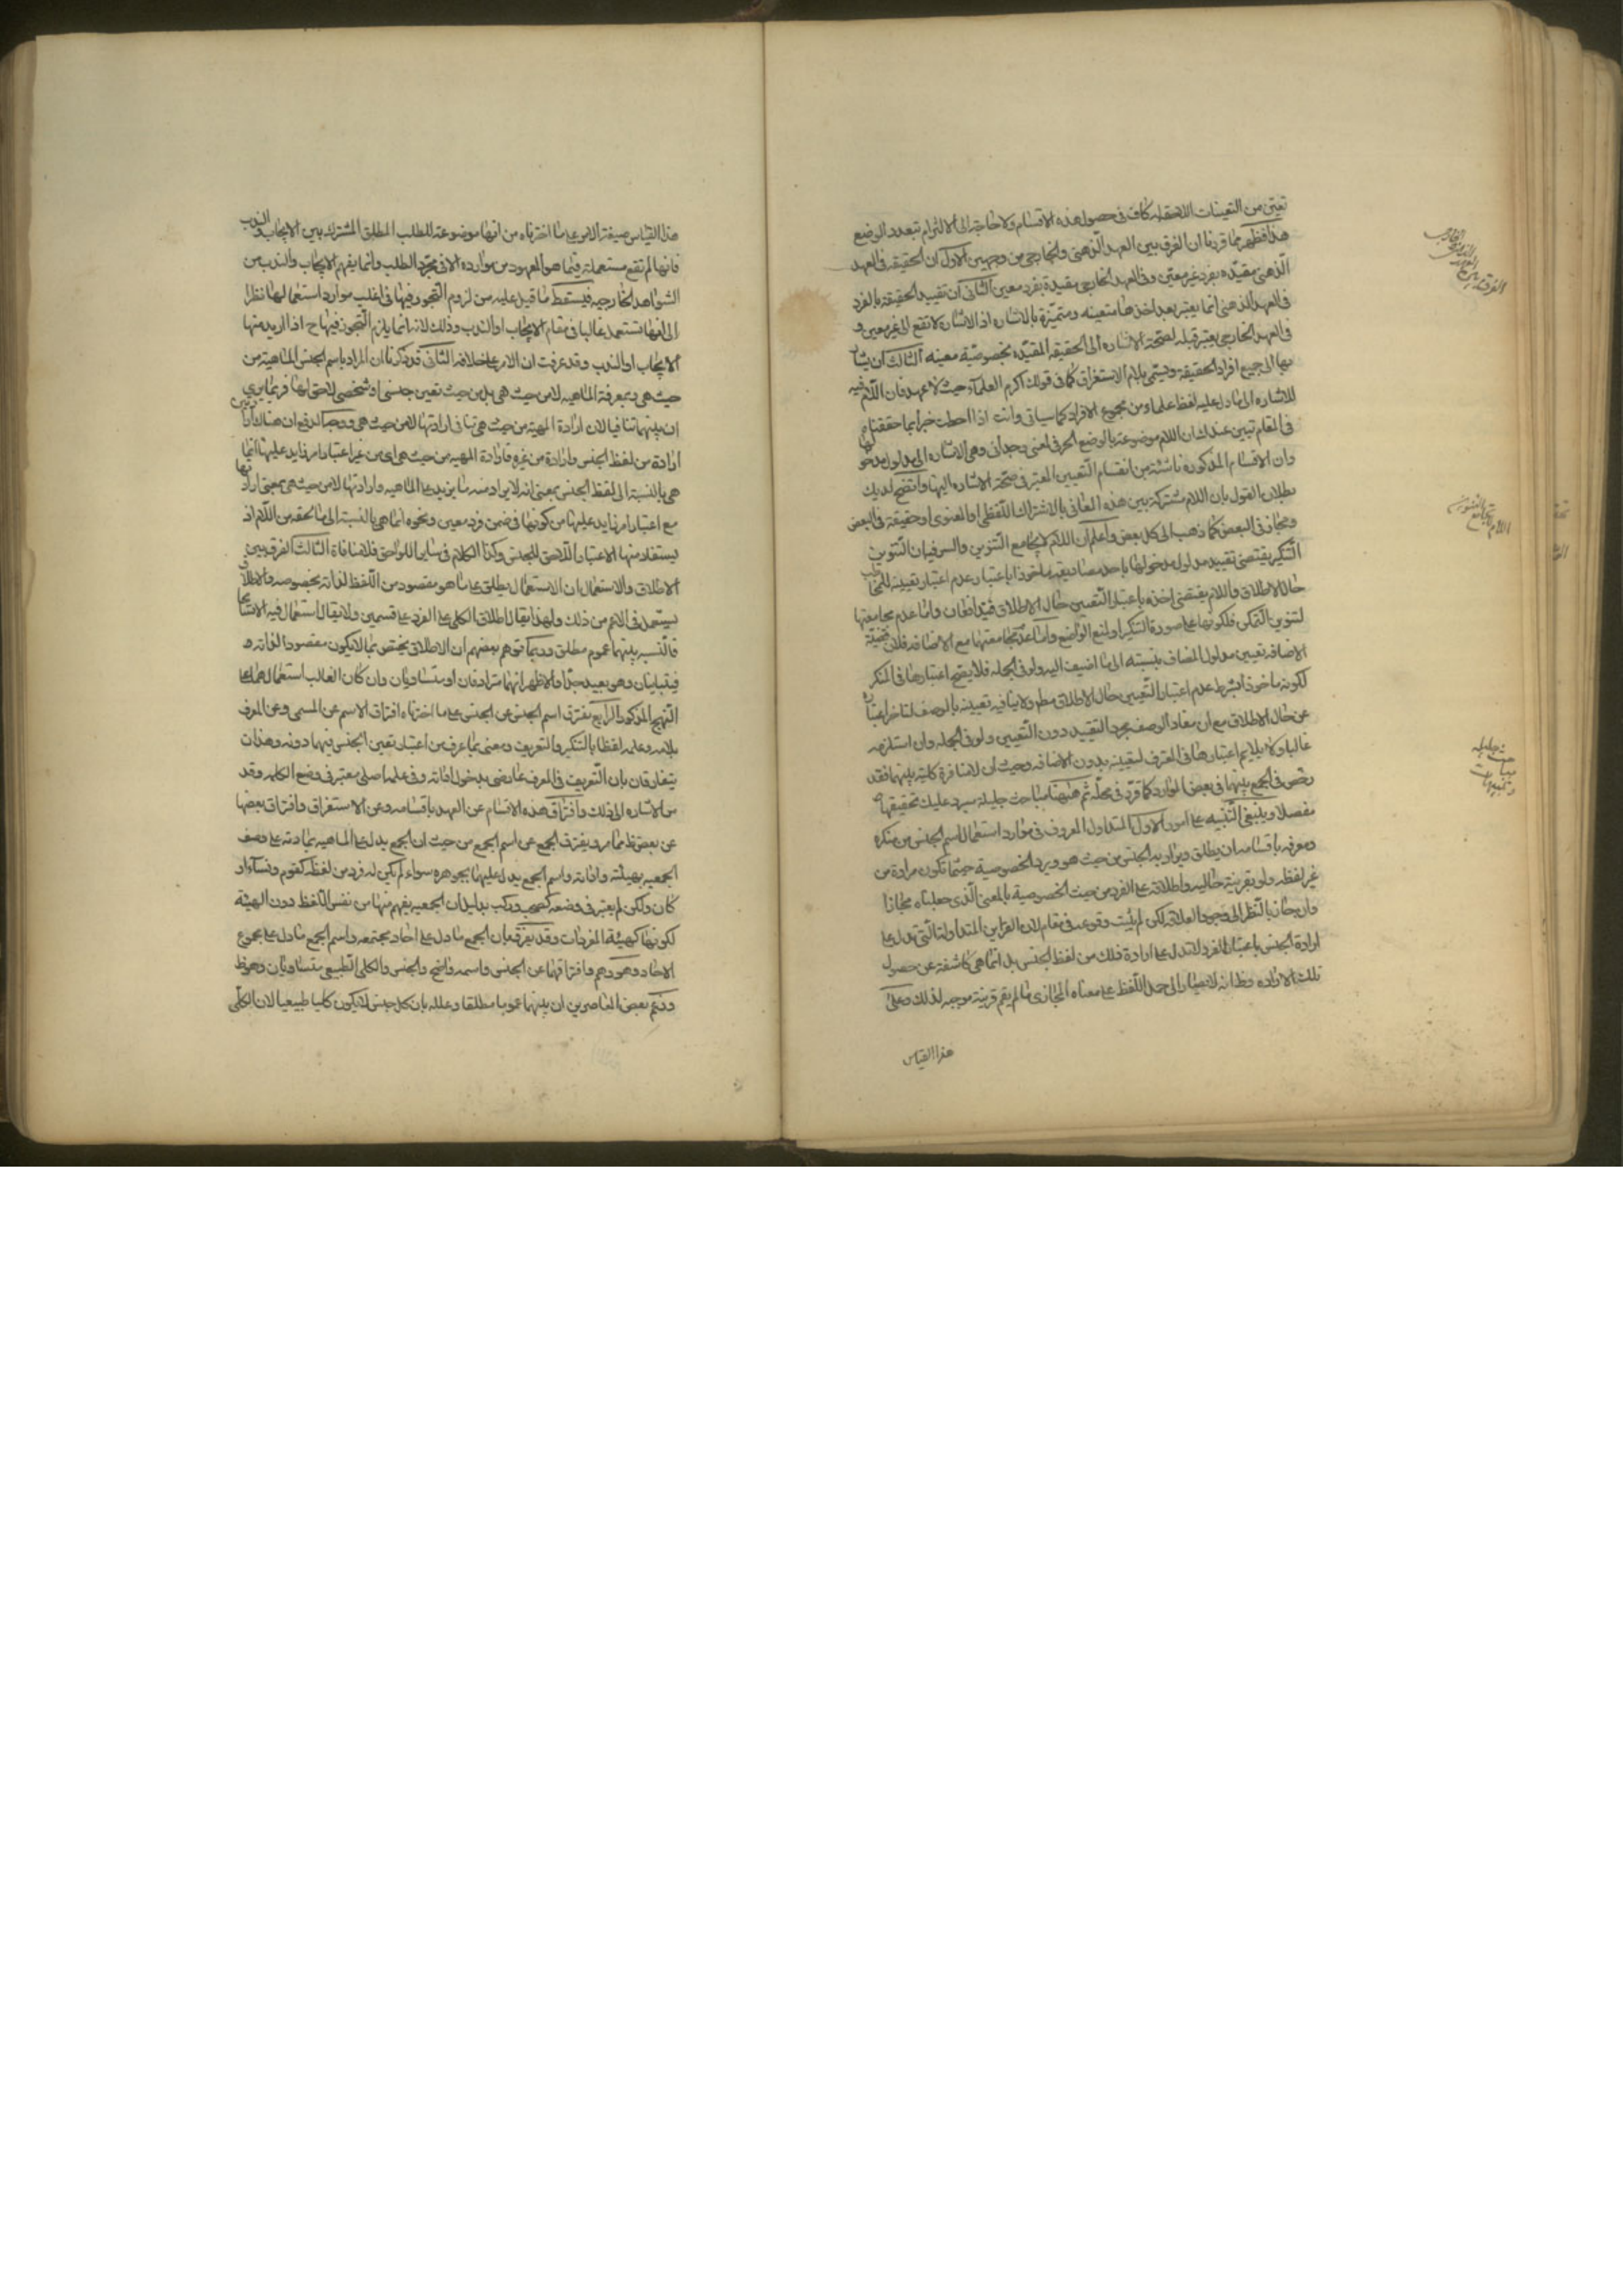 تعين من التعينات اللاحقة له كاف في حصول هذه الاقسام ولا حاجة الى الالتزام بتعدد الوضع
هذا فظهر مما قررنا ان الفرق بين العهد الذهني والخارجي من وجهين الاول ان الحقيقة في العهد
الذهني مقيدة بفرد غير معين وفي العهد الخارجي مقيدة بفرد معين الثاني ان تقييد الحقيقة بالفرد
في العهد الذهني انما يعتبر بعد اخذها متعينه ومتميزة بالاشاره اذ الاشارة لا تقع الى غير معين و
في العهد الخارجي يعتبر قبله لصحة الاشاره الى الحقيقه المقيده بخصوصية معينه الثالث ان يشار
بها الى جميع افراد الحقيقة ويسمى بلام الاستغراق كما في قولك اكرم العلماء حيث لا عهد فان اللام فيه
للاشاره الى ما دل عليه لفظ علماء من مجموع الافراد كما سياتي وانت اذا احطت خبرا بما حققناه
في المقام تبين عندك ان اللام موضوعة بالوضع الحرفي لمعنى وحداني وهي الاشاره الى مدلول مدخولها
وان الاقسام المذكورة ناشئة من انقسام التعيين المعتبر في صحة الاشاره اليها واتضح لديك
بطلان القول بان اللام مشتركة بين هذه المعاني بالاشتراك اللفظي او المعنوي او حقيقة في البعض
ومجاز في البعض كما ذهب الى كل بعض واعلم ان اللام لا يجامع التنوين والسر فيه ان التنوين
التنكير يقتضي تقييد مدلول مدخولها باحد مصاديقه ماخوذا باعتبار عدم اعتبار تعيينه للمخاطب
حال الاطلاق واللام يقتضي اخذه باعتبار التعيين حال الاطلاق فيتدافعان واما عدم مجامعتها
لتنوين التمكن فلكونها على صورة التنكير او لمنع الواضع واما عدم مجامعتها مع الاضافه فلان قضية
الاضافه تعيين مدلول المضاف بنسبته الى ما اضيف اليه ولو في الجمله فلا يصح اعتبارها في المنكر
لكونه ماخوذا بشرط عدم اعتبار التعيين حال الاطلاق مطم ولا ينافيه تعيينه بالوصف لتاخر اعتباره
عن حال الاطلاق مع ان مفاد الوصف مجرد التقييد دون التعيين ولو في الجمله وان استلزمه
غالبا ولا يلايم اعتبارها في المعرف لتعيينه بدون الاضافه وحيث ان لا منافرة كلية بينهما فقد
رخص في الجمع بينهما في بعض الموارد كما قرر في محله ثم هيهنا مباحث جليلة سيرد عليك تحقيقها
مفصلا وينبغي التنبيه على امور الاول المتداول المعروف في موارد استعمال اسم الجنس من منكره
ومعرفه باقسامه ان يطلق ويراد به الجنس من حيث هو ويرد الخصوصية حيثما تكون مرادة من
غير لفظه ولو بقرينة حاليه واطلاقه على الفرد من حيث الخصوصية بالمعنى الذي جعلناه مجازا
وان جاز بالنظر الى وجود العلاقة لكن لم يثبت وقوعه في مقام لان القراين المتداولة التي تدل على
ارادة الجنس باعتبار الفرد لا تدل على ارادة ذلك من لفظ الجنس بل انما هي كاشفة عن حصول
تلك الاراده وظ انه لا يصار الى حمل اللفظ على معناه المجازي ما لم يقم قرينة موجبه لذلك وعلى
هذا القياس
اللام لا يجامع التنوين
مباحث جليله
وتنبيهات
هذا القياس صيغة الامر على ما اخترناه من انها موضوعة للطلب المطلق المشترك بين الايجاب والندب
فانها لم تقع مستعملة فيما هو المعهود من موارده الا في مجرد الطلب وانما يفهم الايجاب والندب من
الشواهد الخارجيه فيسقط ما قيل عليه من لزوم التجوز فيها في اغلب موارد استعمالها نظرا
الى انها تستعمل غالبا في مقام الايجاب او الندب وذلك لانه انما يلزم التجوز فيها ح اذا اريد منها
الايجاب او الندب وقد عرفت ان الامر على خلافه الثاني قد ذكرنا ان المراد باسم الجنس الماهية من
حيث هي وبمعرفة الماهيه لا من حيث هي بل من حيث تعين جنسي او شخصي لاحق لها فربما يرى
ان بينهما تنافيا لان ارادة المهية من حيث هي تنافي ارادتها لا من حيث هي ووجه الدفع ان هناك ارادتين
ارادة من لفظ الجنس وارادة من غيره فارادة المهيه من حيث هي اي من غير اعتبار امر زايد عليها انما
هي بالنسبة الى لفظ الجنس بمعنى انه لا يراد منه ما يزيد على الماهيه وارادتها لا من حيث هي بمعنى ارادتها
مع اعتبار امر زايد عليها من كونها في ضمن فرد معين ونحوه انما هي بالنسبة الى ما لحقه من اللام اذ
يستفاد منها الاعتبار اللاحق للجنس وكذا الكلام في ساير اللواحق فلا منافاة الثالث الفرق بين
الاطلاق والاستعمال ان الاستعمال يطلق على ما هو مقصود من اللفظ لذاته بخصوصه والاطلاق
يستعمل في الاعم من ذلك ولهذا يقال اطلاق الكلي على الفرد على قسمين ولا يقال استعمال فيه الا تسامحا
فالنسبه بينهما عموم مطلق وربما توهم بعضهم ان الاطلاق يختص بما لا يكون مقصودا لذاته و
فيتباينان وهو بعيد جدا والاظهر انهما مترادفان او متساويان وان كان الغالب استعمالهما على
النهج المذكور الرابع يفترق اسم الجنس عن الجنس على ما اخترناه افتراق الاسم عن المسمى وعن المعرف
بلامه وعلمه لفظا بالتنكير والتعريف ومعنى بما عرف من اعتبار تعين الجنس فيهما دونه وهذان
يتفارقان بان التعريف في المعرف عارضي بدخول اداته وفي علمه اصلي معتبر في وضع الكلمه وقد
مر الاشاره الى ذلك وافتراق هذه الاقسام عن العهد باقسامه وعن الاستغراق وافتراق بعضها
عن بعض ظ مما مر ويفترق الجمع عن اسم الجمع من حيث ان الجمع يدل على الماهيه بمادته وعلى وصف
الجمعيه بهيئته واداته واسم الجمع يدل عليهما بجوهره سواء لم يكن له فرد من لفظه كقوم ونساء او
كان ولكن لم يعتبر في وضعه كصحب وركب بدليل ان الجمعيه يفهم منها من نفس اللفظ دون الهيئة
لكونها كهيئة المفردات وقد يفرق بان الجمع ما دل على احاد مجتمعه واسم الجمع ما دل على مجموع
الاحاد وهو وهم وافتراقهما عن الجنس واسمه واضح والجنس والكلي الطبيعي متساويان وهو ظ
وزعم بعض المعاصرين ان بينهما عموما مطلقا وعلله بان كل جنس لا يكون كليا طبيعيا لان الكلي